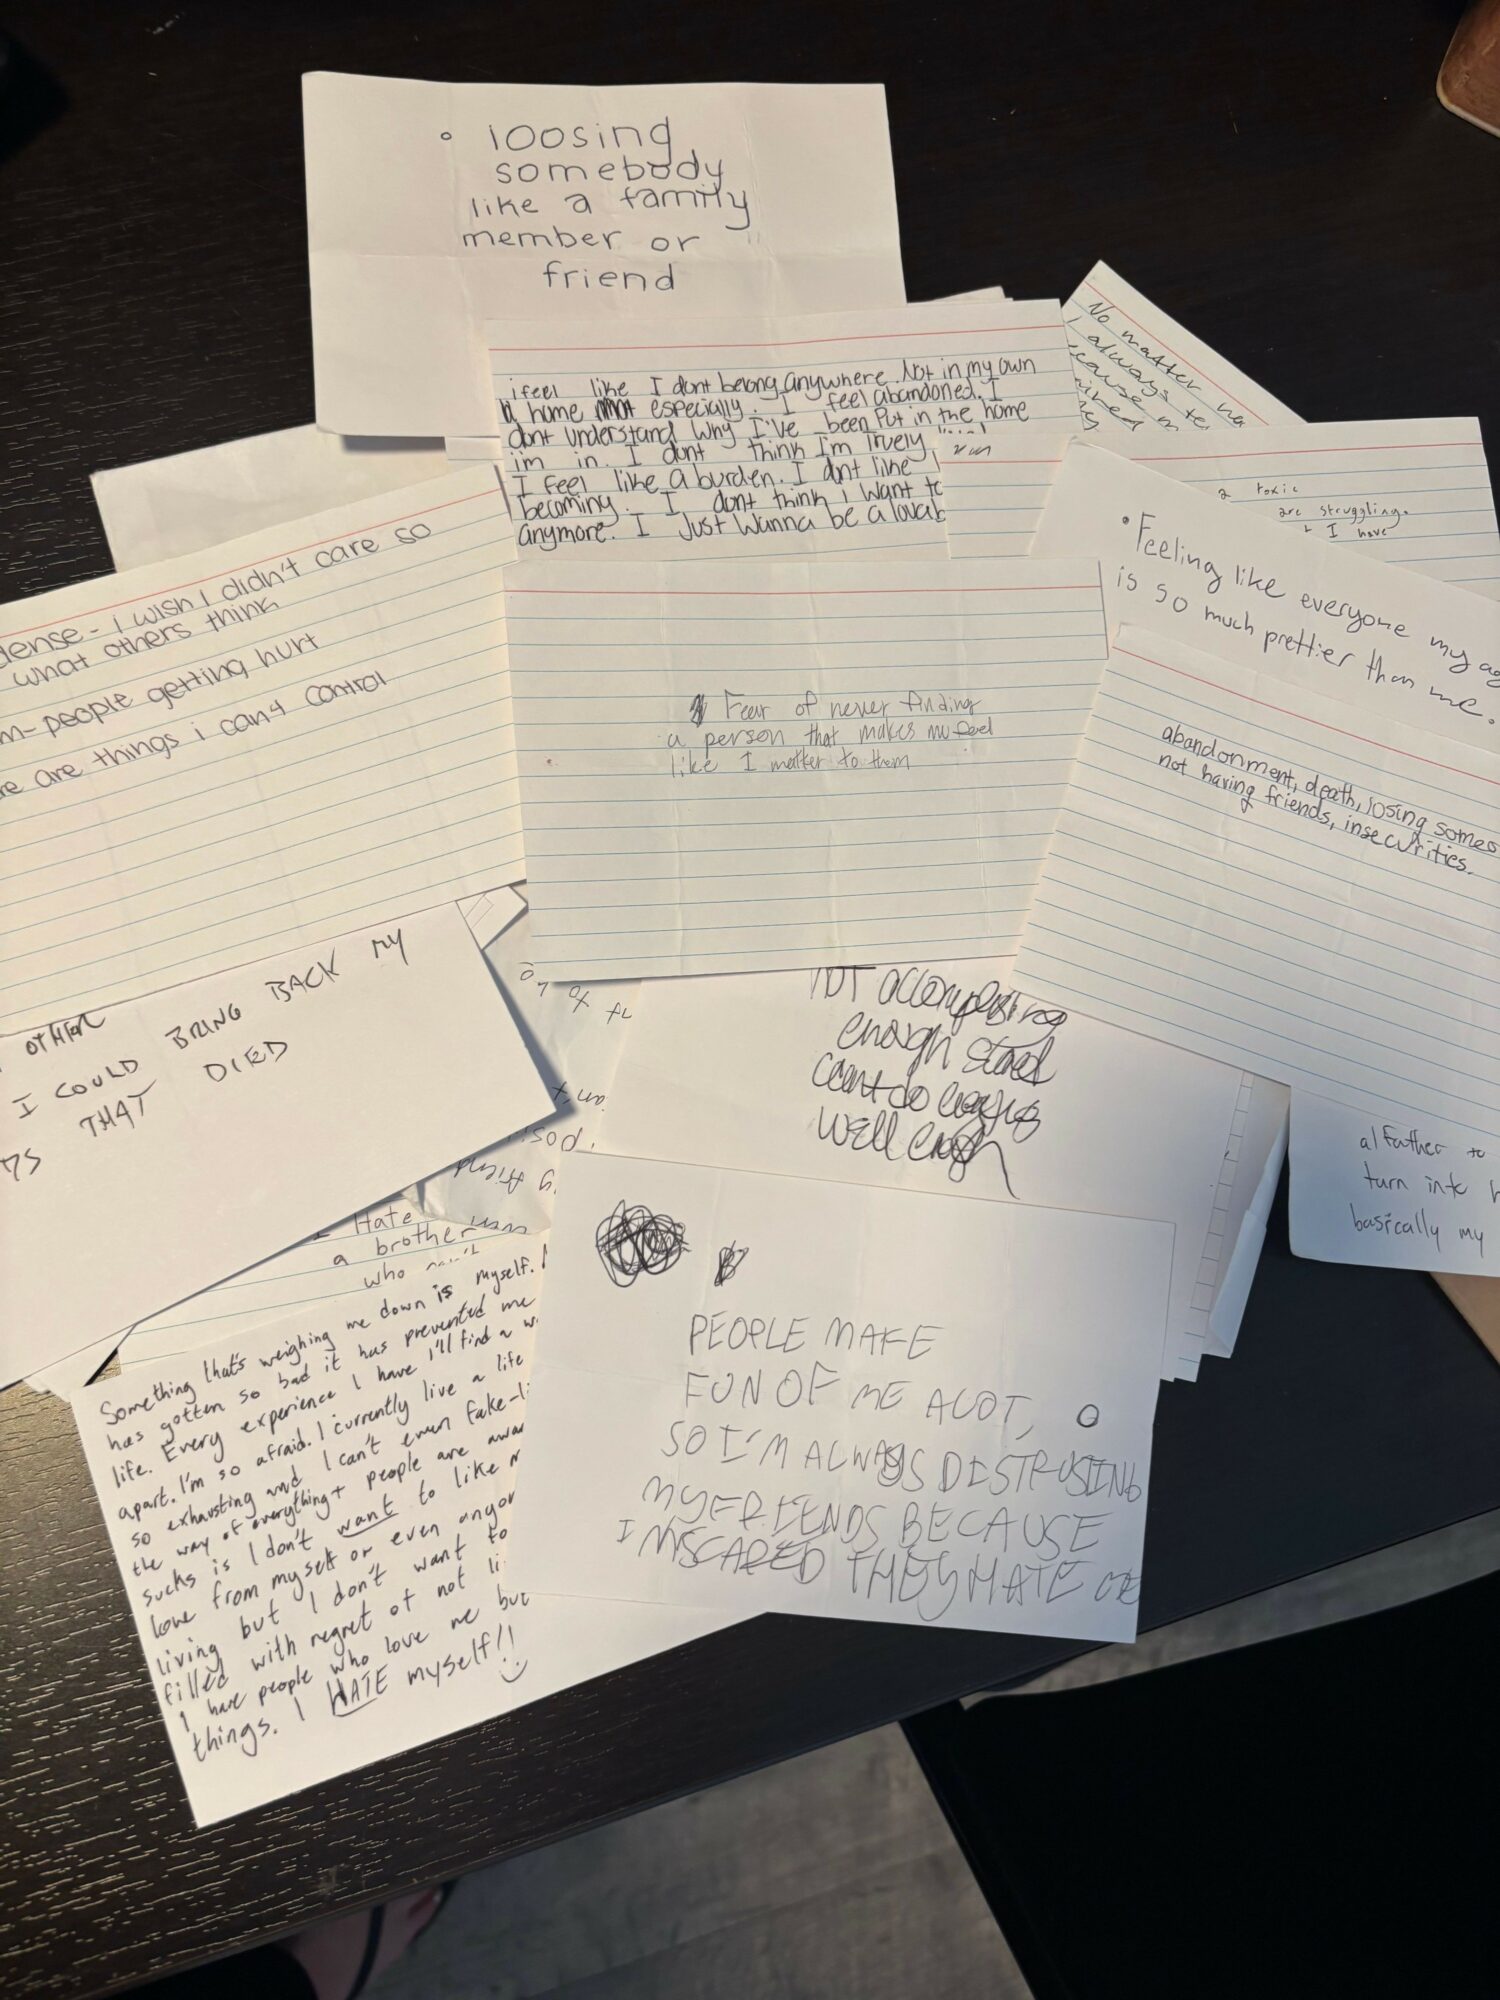 loosing
somebody
like a family
member or
friend
ifeel like I dont belong anywhere. Not in my own
home especially. I feel abandoned. I
dont understand why I've been Put in the home
im in. I dont think I'm truely
I feel like a burden. I dont like
becoming. I dont think i want to
anymore. I Just Wanna be a lovab
No matter
I always te
toxic
are struggling.
I have
Feeling like everyone my ag
is so much prettier than me.
dense - i wish I didn't care so
what others think
m- people getting hurt
re are things i can't control
Fear of never finding
a person that makes me feel
like I matter to them
abandonment, death, losing someo
not having friends, insecurities.
OTHER
I COULD BRING BACK MY
THAT DIED
enough
can't do
well enough
al father to
turn into h
basically my
I Hate
a brother
who
Something that's weighing me down is myself.
has gotten so bad it has prevented me
life. Every experience I have I'll find a w
apart. I'm so afraid. I currently live a life
so exhausting and I can't even fake-li
the way of everything + people are awar
sucks is I don't want to like m
love from myself or even anyon
living but I don't want to
filled with regret of not li
I have people who love me but
things. I HATE myself!!
PEOPLE MAKE
FUN OF ME ALOT,
SO I'M ALWAYS DISTRUSTING
MY FRIENDS BECAUSE
I'M SCARED THEY HATE ME